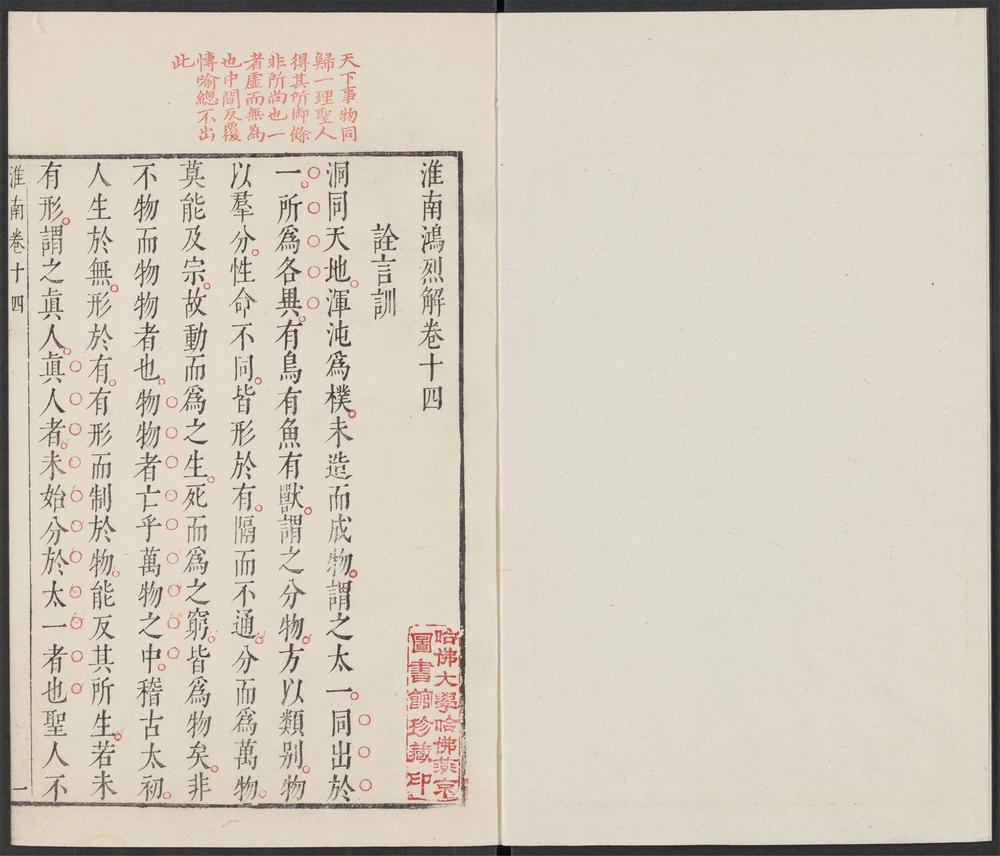 天下事物同
歸一理聖人
得其所御餘
非所尚也一
者虛而無為
也中間反覆
愽喻總不出
此
淮南鴻烈解卷十四
詮言訓
洞同天地。渾沌爲樸。未造而成物。謂之太一。同出於
一。所爲各異。有鳥有魚有獸。謂之分物。方以類别。物
以羣分。性命不同。皆形於有。隔而不通。分而爲萬物。
莫能及宗。故動而爲之生。死而爲之窮。皆爲物矣。非
不物而物物者也。物物者亡乎萬物之中。稽古太初。
人生於無。形於有。有形而制於物。能反其所生。若未
有形。謂之眞人。眞人者。未始分於太一者也。聖人不
淮南卷十四
一
哈佛大學哈佛燕京
圖書館珍藏印